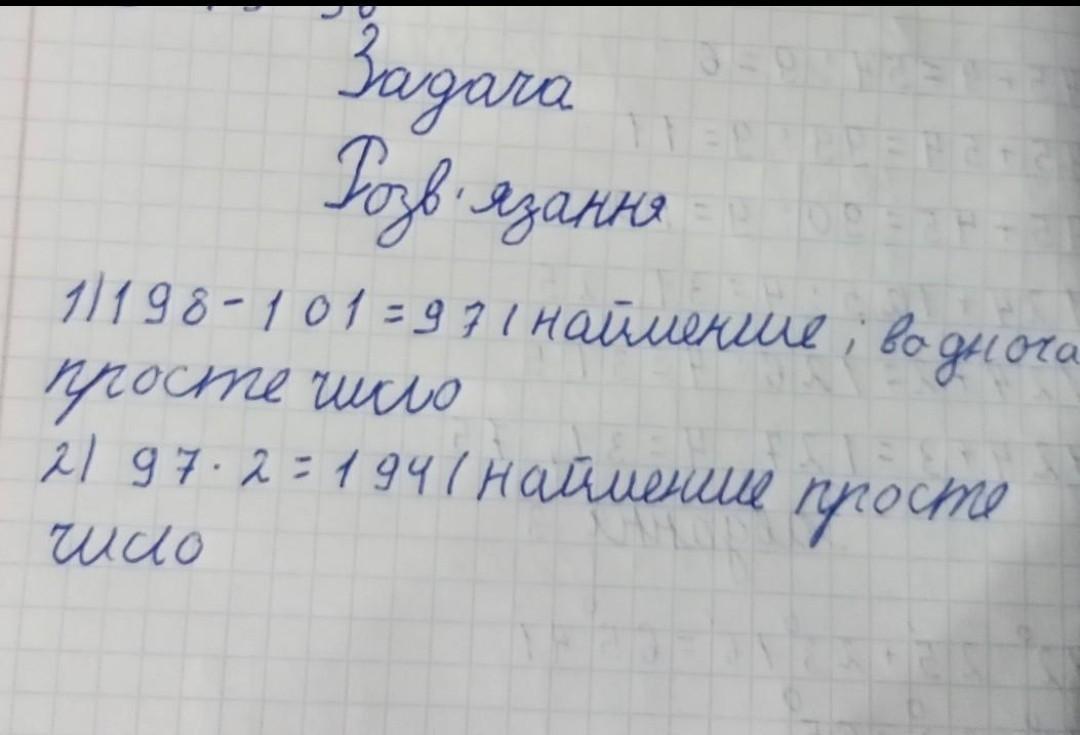 Задача
Розв'язання
1) 198 - 101 = 97 (найменше; водноча
просте число
2) 97 · 2 = 194 (найменше просте
число